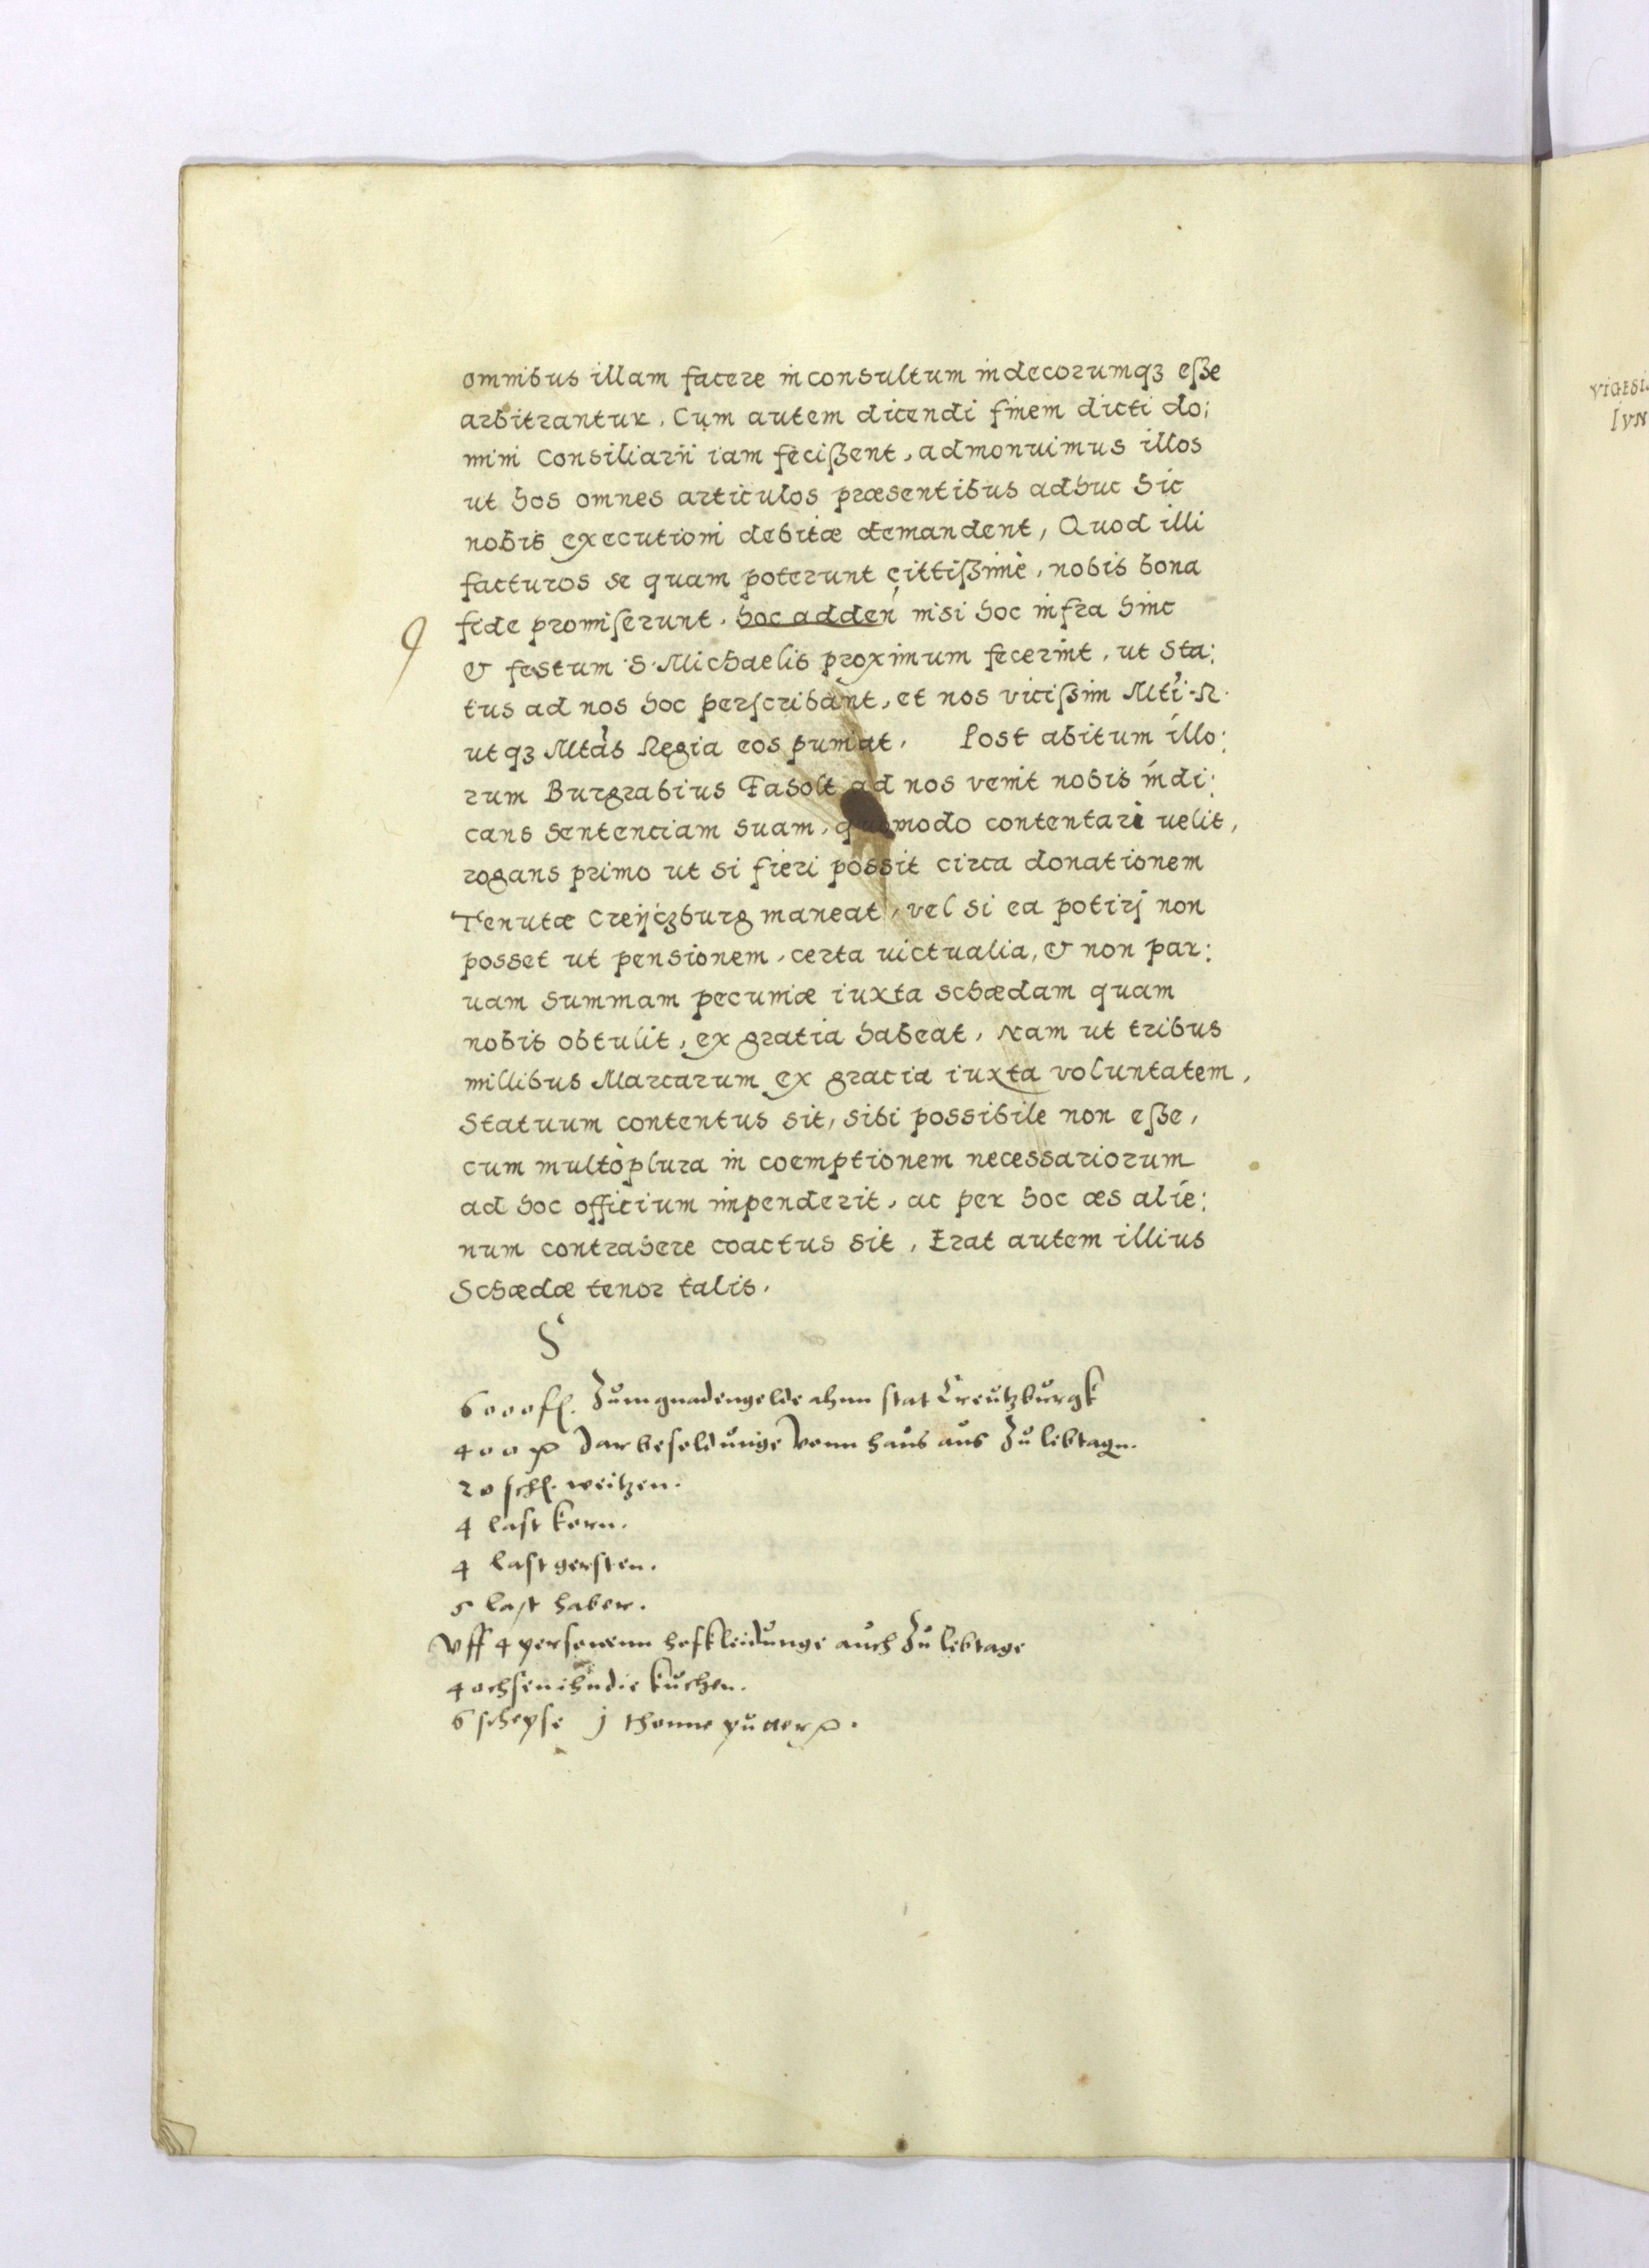 omnibus illam facere inconsultum indecorumqꝫ eſse
arbitrantur, Cum autem dicendi finem dicti do:
mini Consiliarii iam feciſsent, admonuimus illos
ut hos omnes articulos præsentibus adhuc hic
nobis executioni debitæ demandent, Quod illi
facturos se quam poterunt cittiſsimè, nobis bona
fide promiſerunt. hoc adden nisi hoc infra hinc
& festum S. Michaelis proximum fecerint, ut Sta:
tus ad nos hoc perſcribant, et nos viciſsim Mti R.
ut qꝫ Mtas Regia eos puniat. Post abitum illo:
rum Burgrabius Fasolt ad nos venit nobis indi:
cans sententiam suam, quomodo contentari uelit,
rogans primo ut si fieri possit circa donationem
Tenutæ Creijczburg maneat, vel si ea potirj non
posset ut pensionem, certa uictualia, & non par:
uam summam pecuniæ iuxta schædam quam
nobis obtulit, ex gratia habeat, Nam ut tribus
millibus Marcarum ex gracia iuxta voluntatem,
Statuum contentus sit, sibi possibile non eſse,
cum multò plura in coemptionem necessariorum
ad hoc officium impenderit, ac per hoc æs alie:
num contrahere coactus sit, Erat autem illius
Schædæ tenor talis.
6000 fl. Zum gnadengelde ahnn stat Creutzburgk
400 Jar besoldunge vonn haus aus Zu lebtagn.
20 schl. weitzen.
4 last korn.
4 last gersten.
5 last haber.
Vff 4 personenn hofkleidunge auch Zu lebtage
4 ochsen ihn die kuchen.
6 schepse j thonne putter
VIGESI
IVN